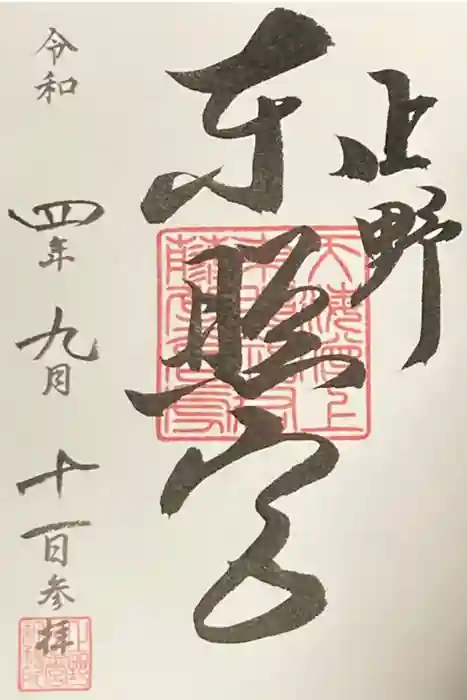 上野
東照宮
令和四年九月十一日参拝